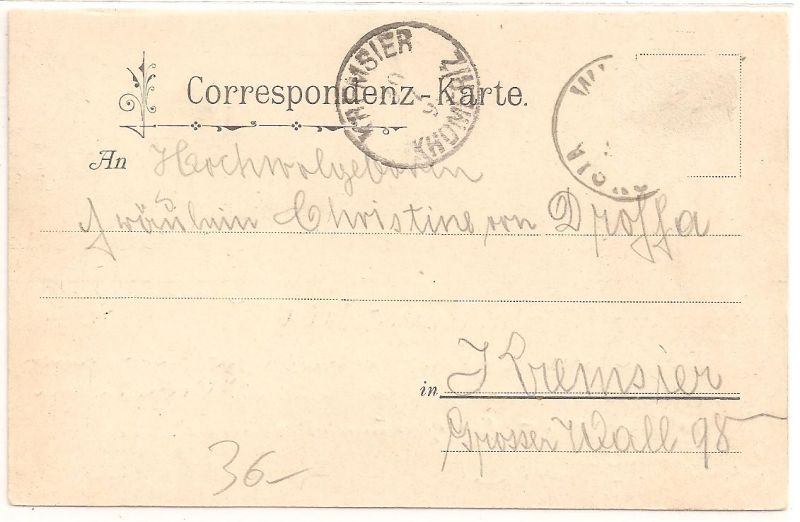 Correspondenz-Karte.
KREMSIER
An Hochwolgeboren
Fräulein Christine von Drossa
in Kremsier
Grosser Wall 98
36-